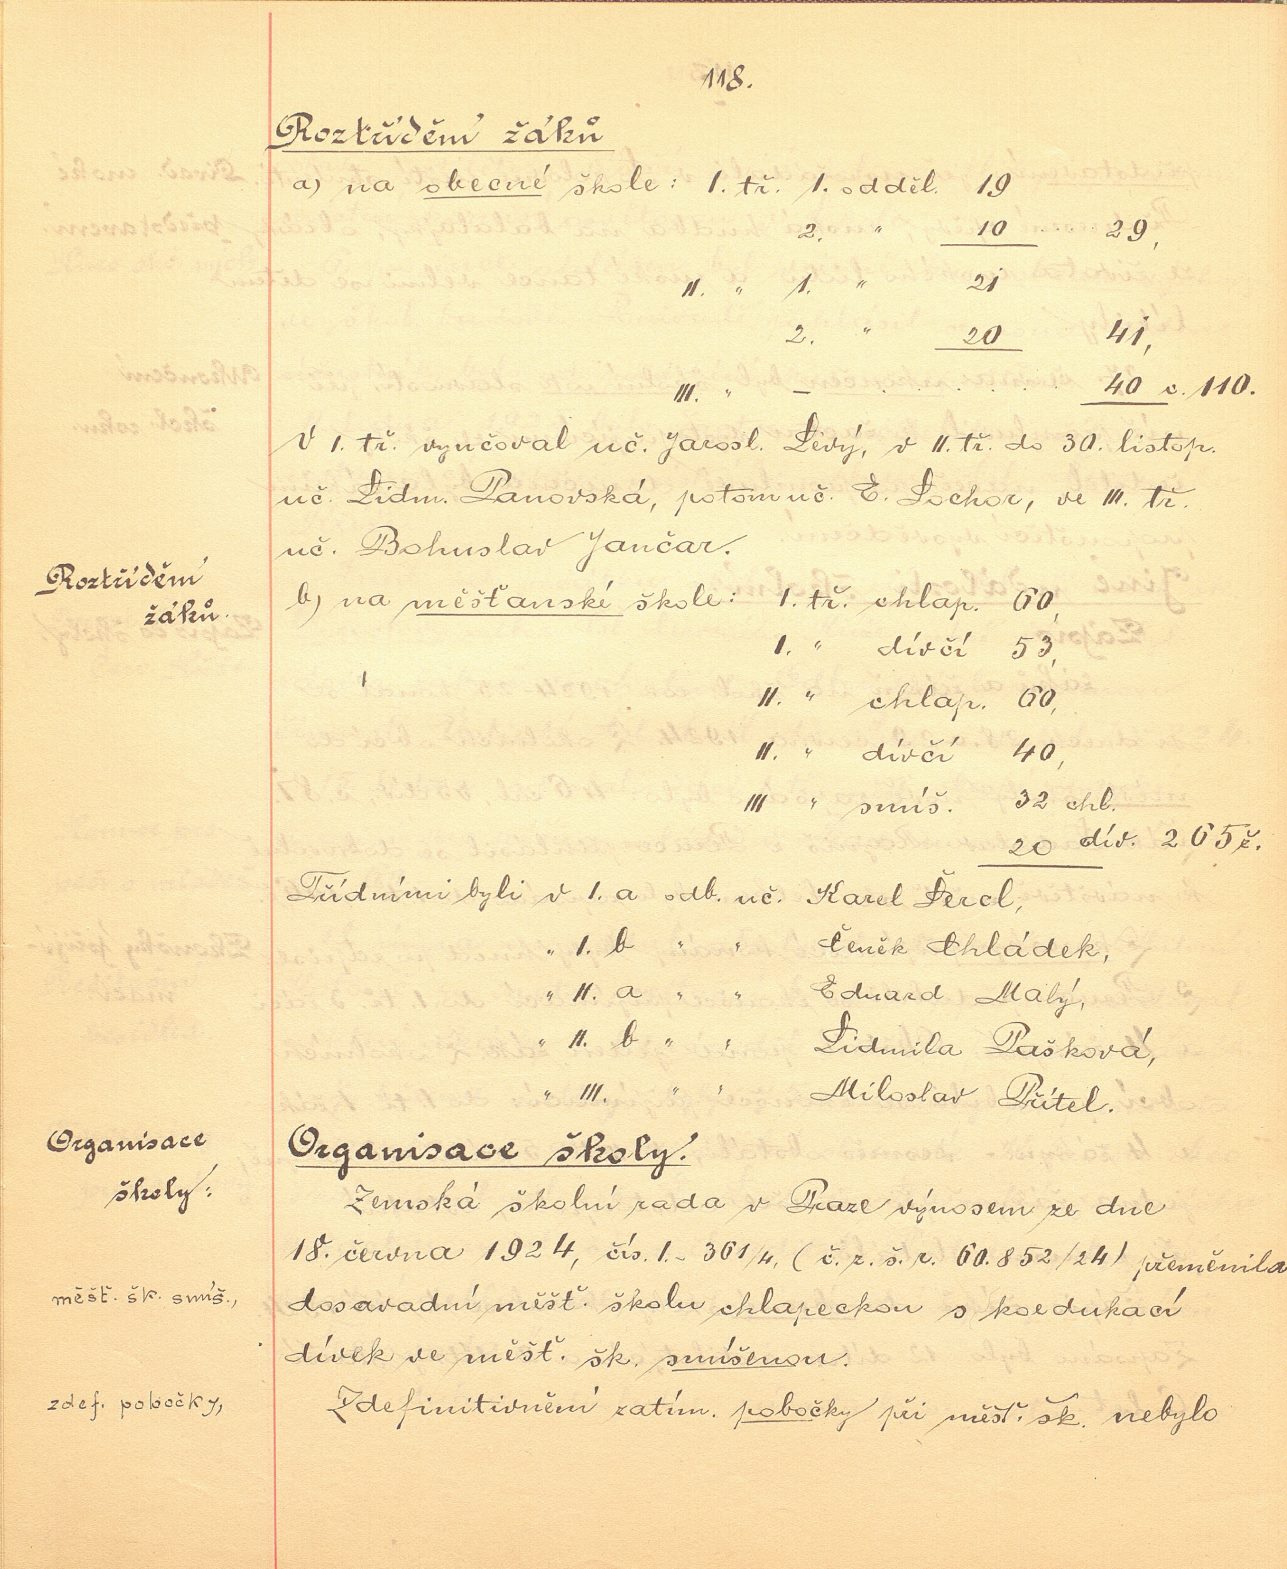 118.
Roztřídění žáků
a) na obecné škole: I. tř. 1. odděl. 19
2. " 10 29,
II. " 1. " 21
2. " 20 41,
III. " — . . . . . 40 c. 110.
V I. tř. vyučoval uč. Jarosl. Levý, v II. tř. do 30. listop.
uč. Lidm. Panovská, potom uč. E. Lochor, ve III. tř.
uč. Bohuslav Jančar.
Roztřídění
žáků.
b) na měšťanské škole: I. tř. chlap. 60,
I. " dívčí 53,
II. " chlap. 60,
II. " dívčí 40,
III " smíš. 32 chl.
20 dív. 265 ž.
Třídními byli v I. a odb. uč. Karel Šercl,
" I. b " " Čeněk Chládek,
" II. a " " Eduard Malý,
" II. b " " Lidmila Pašková,
" III. " " Miloslav Přítel.
Organisace
školy:
Organisace školy.
Zemská školní rada v Praze výnosem ze dne
18. června 1924, čís. I.- 361/4, (č. z. š. r. 60.852/24) přeměnila
měšť. šk. smíš.,
dosavadní měšť. školu chlapeckou s koedukací
dívek ve měšť. šk. smíšenou.
zdef. pobočky,
Zdefinitivnění zatím. pobočky při měšť. šk. nebylo